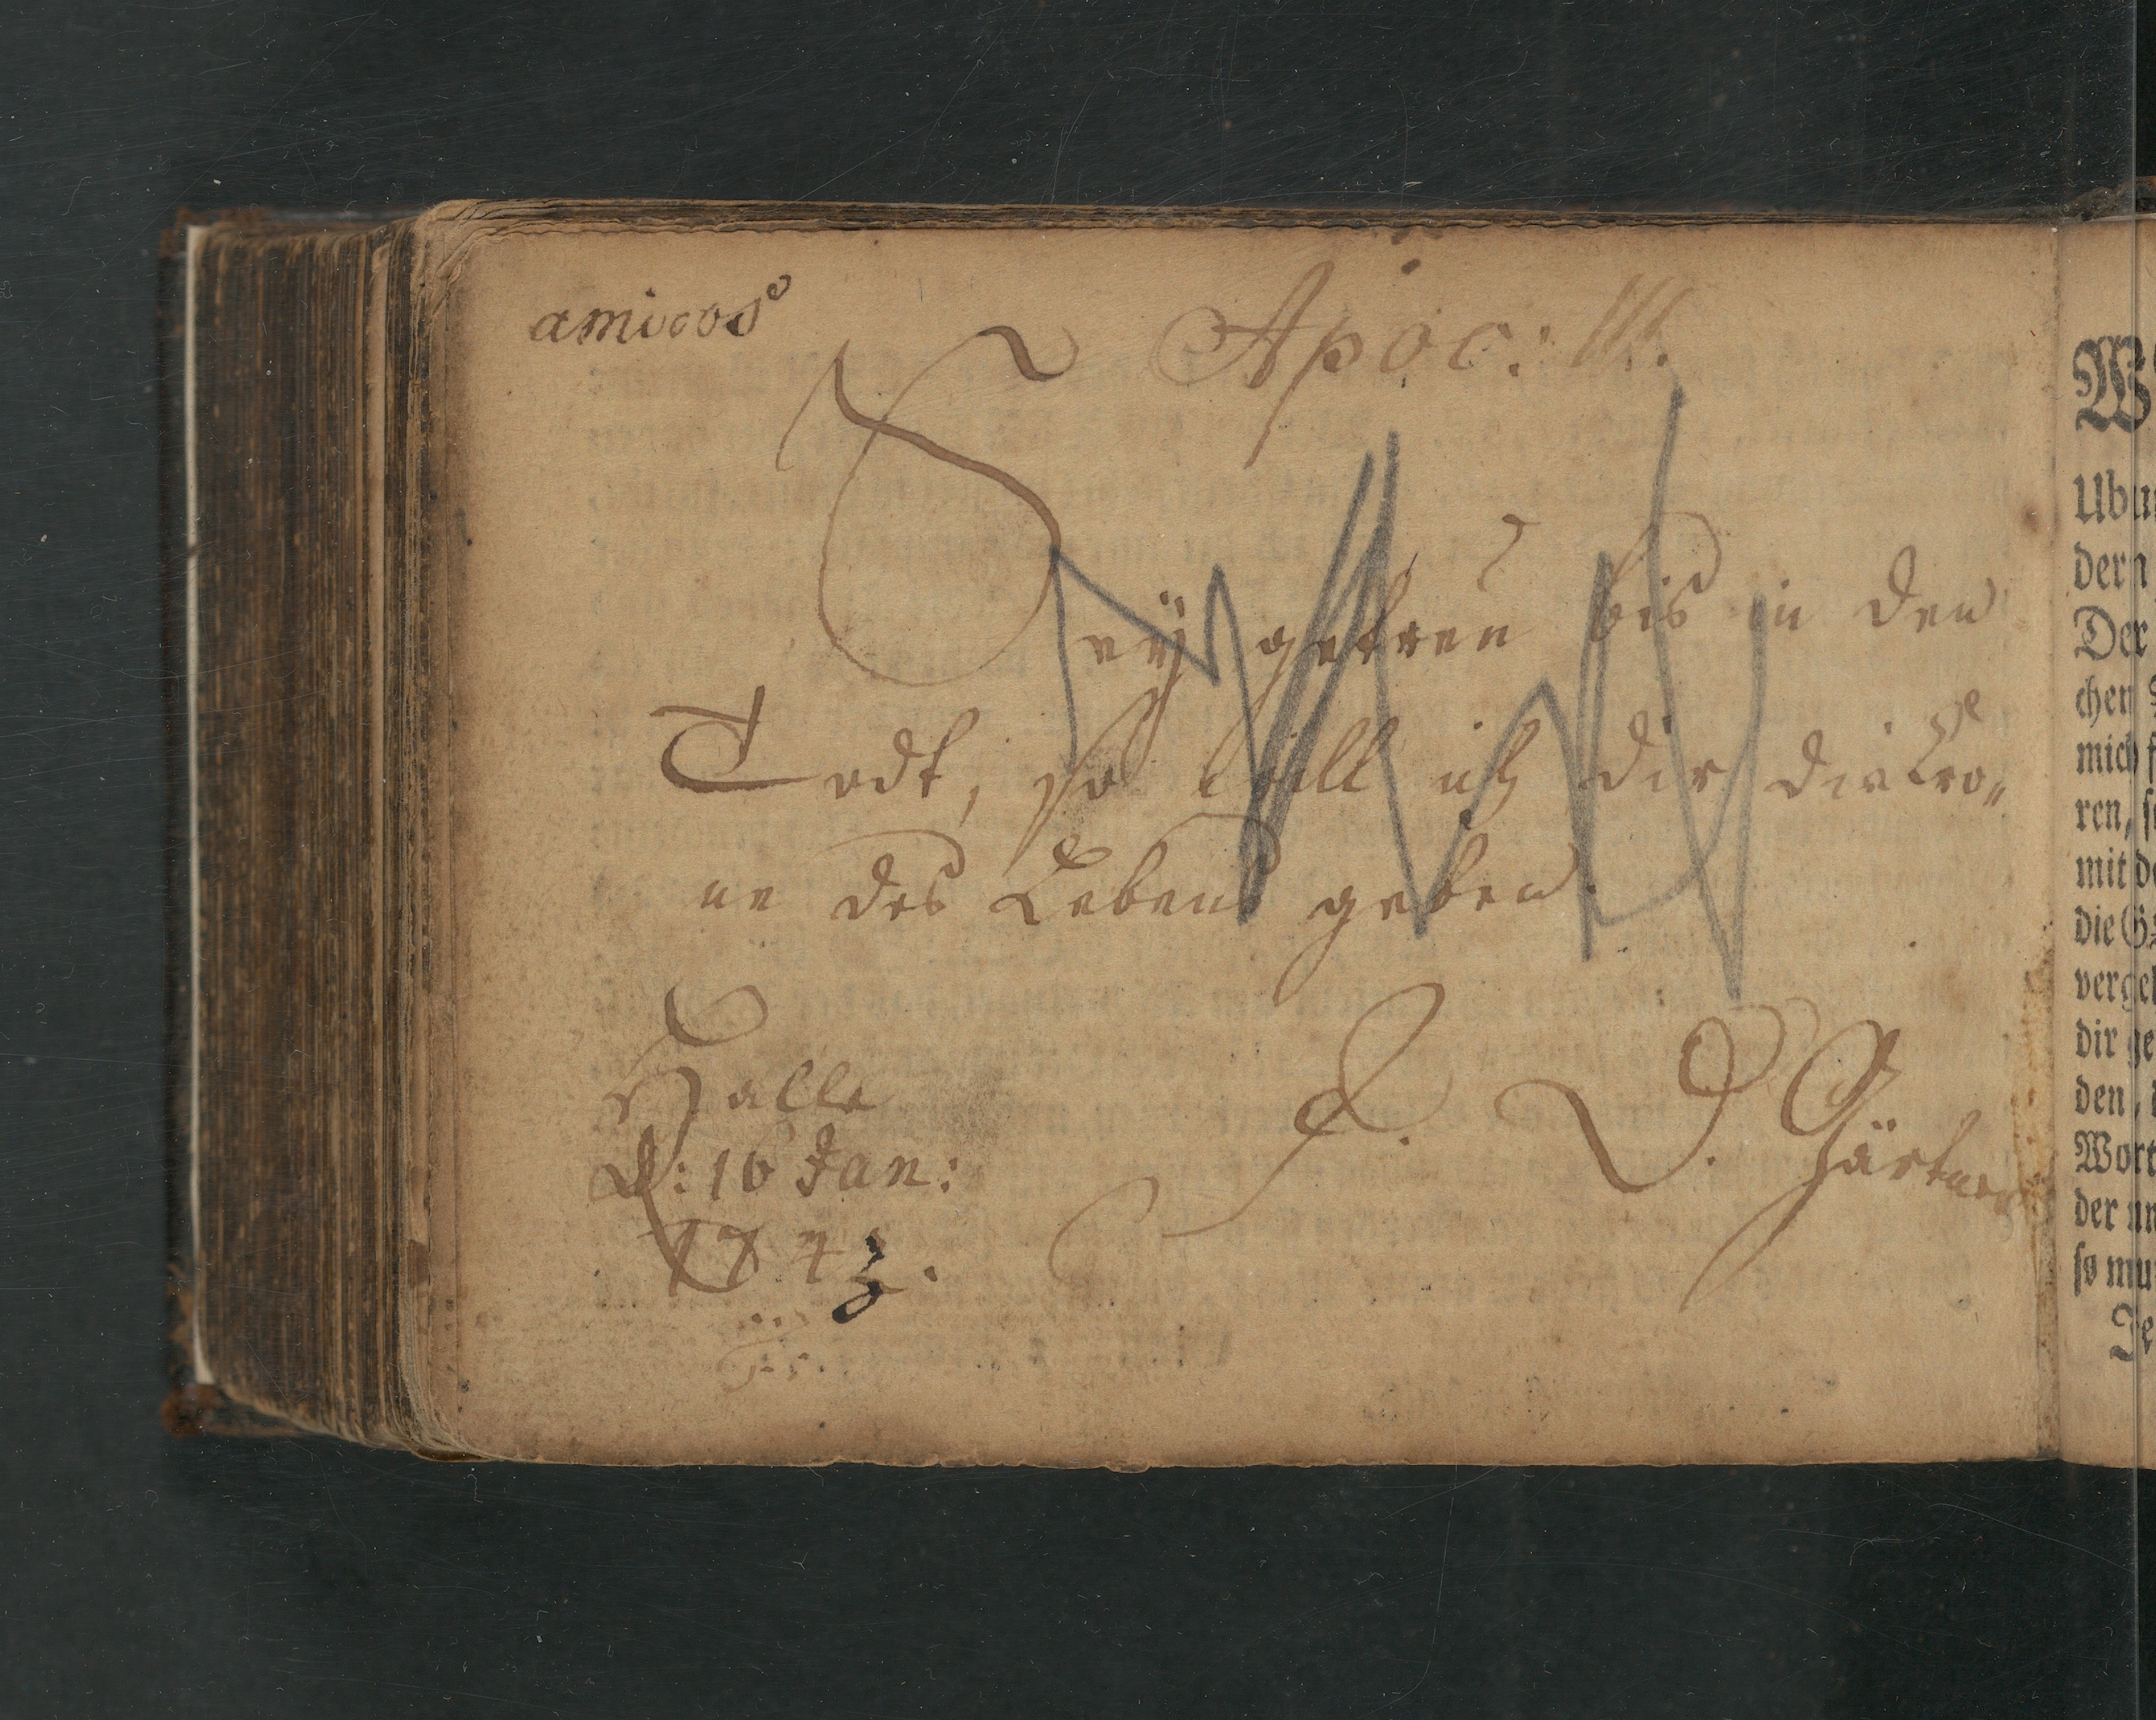 amicos
Apoc: III.
Seÿ getreu bis in den
Todt, so will ich dir die Kro„
ne des Lebens geben.
Halle
D: 16 Jan:
1743.
J. D. Gärtner
W
Ubu
dern
Der
chen
mich f
ren, s
mit de
die G
vergel
dir ge
den,
Wort
der un
so mu
Je